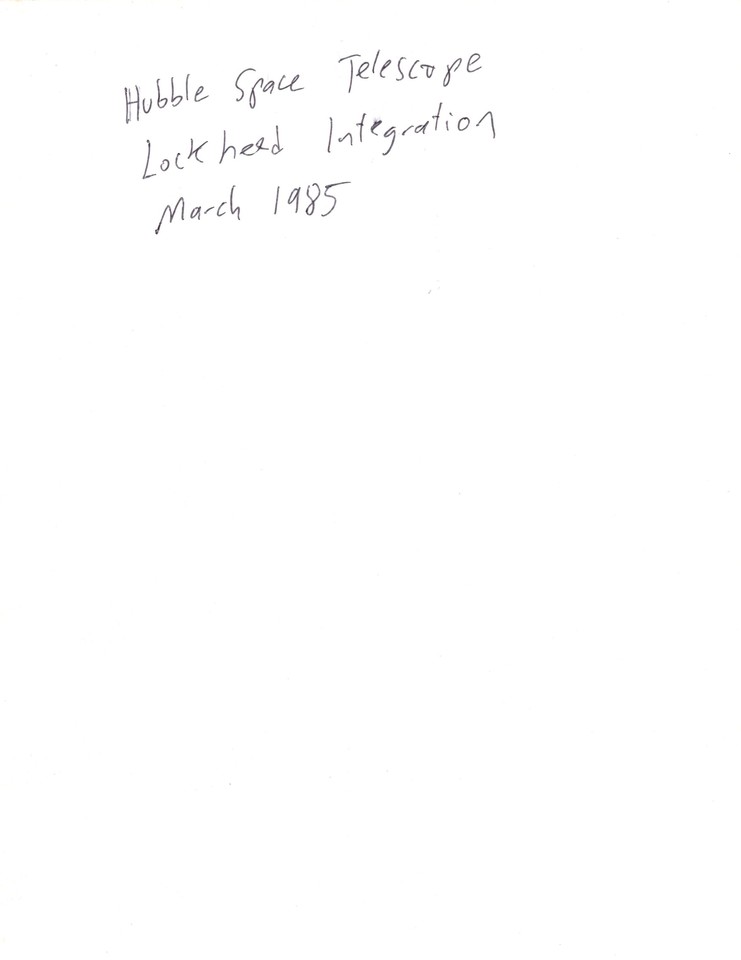 Hubble Space Telescope
Lockheed Integration
March 1985